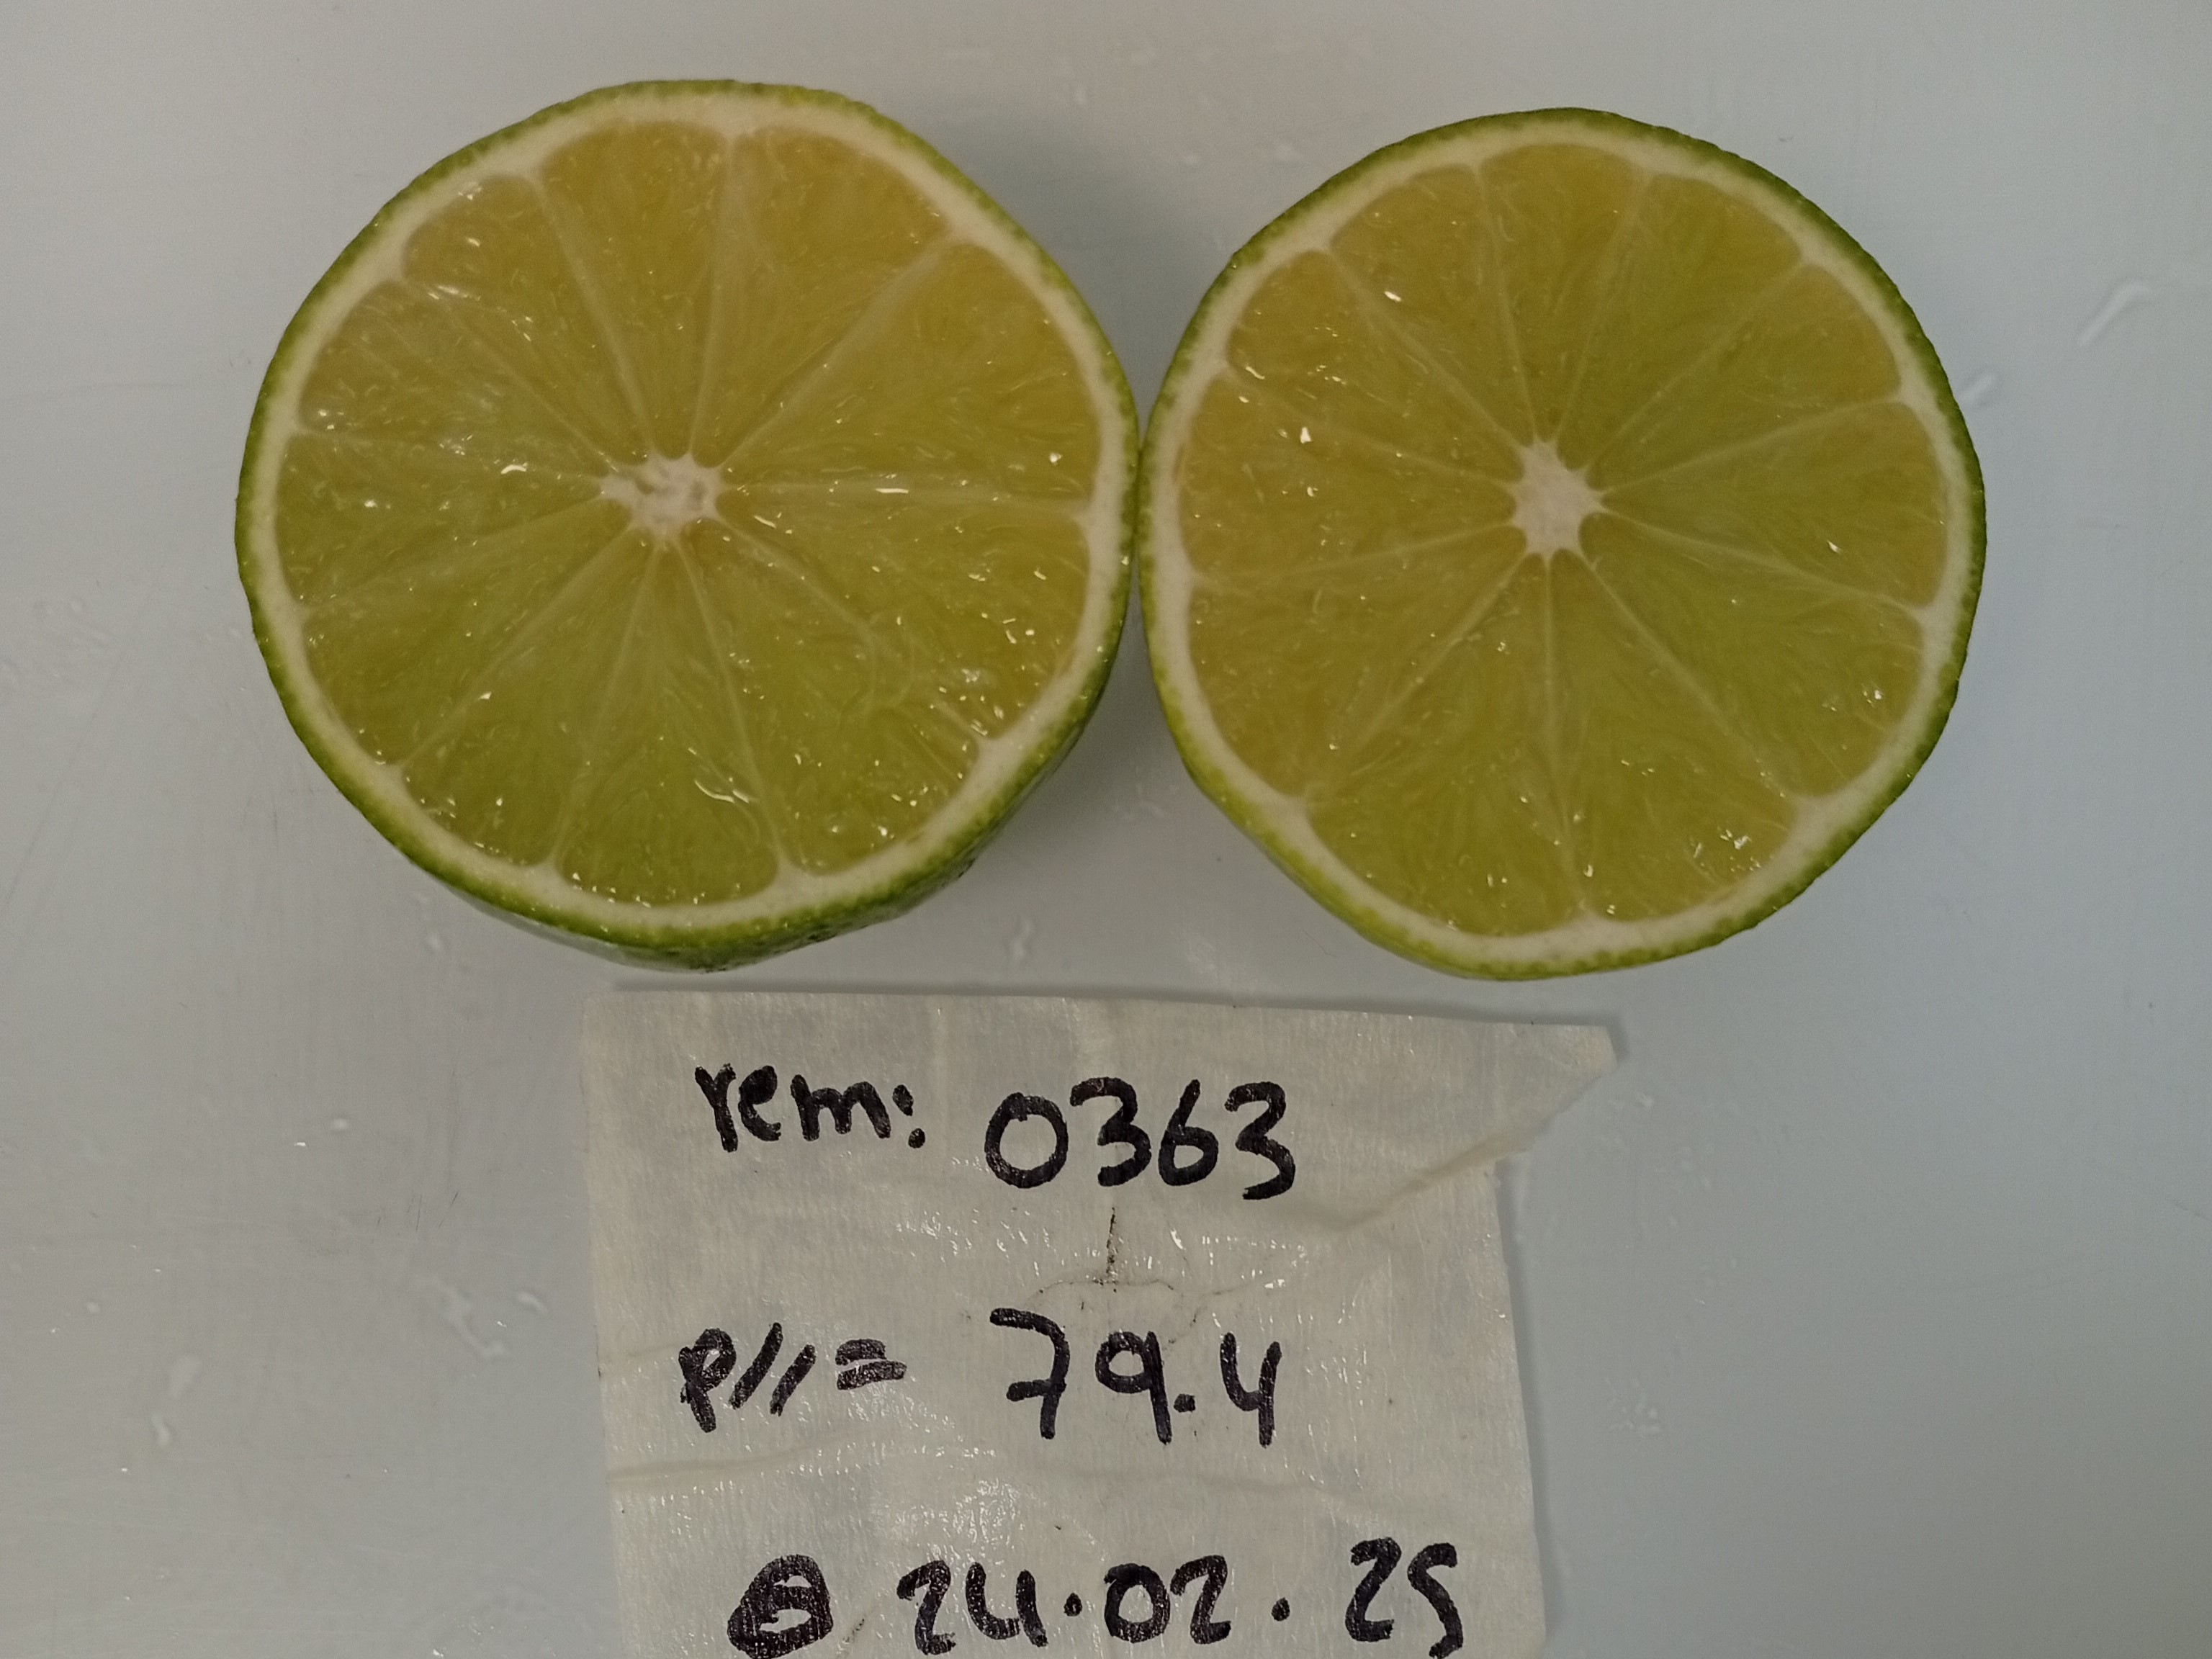 rem: 0363
p// = 79.4
24.02.25